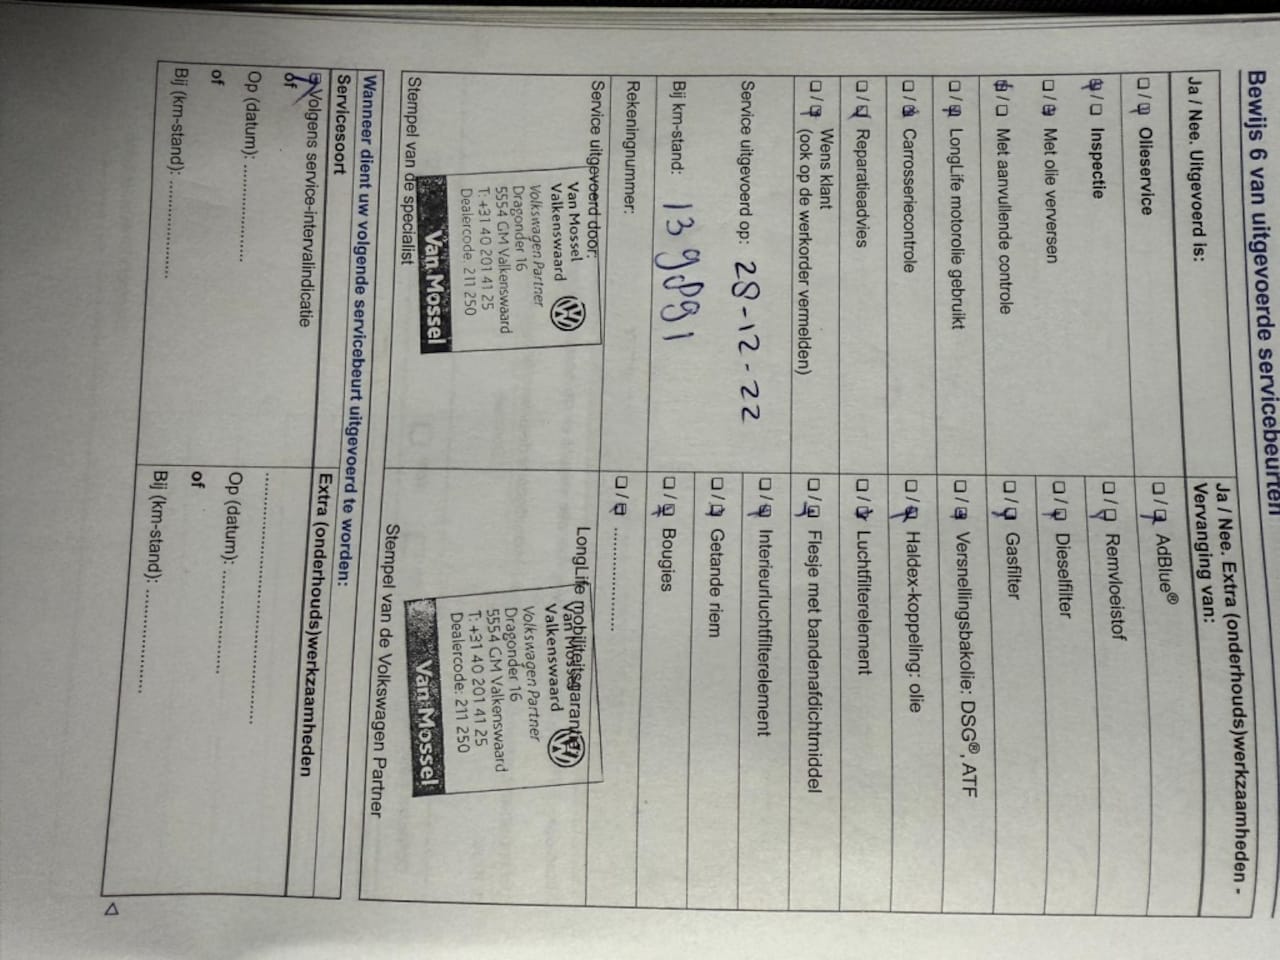 Bewijs 6 van uitgevoerde servicebeurten
Ja / Nee. Uitgevoerd is:
Olieservice
Inspectie
Met olie verversen
Met aanvullende controle
LongLife motorolie gebruikt
Carrosseriecontrole
Reparatieadvies
Wens klant
(ook op de werkorder vermelden)
Service uitgevoerd op: 28-12-22
Bij km-stand: 139891
Rekeningnummer:
Service uitgevoerd door:
Van Mossel
Valkenswaard
Volkswagen Partner
Dragonder 16
5554 GM Valkenswaard
T: +31 40 201 41 25
Dealercode: 211 250
Van Mossel
Stempel van de specialist
Ja / Nee. Extra (onderhouds)werkzaamheden -
Vervanging van:
AdBlue®
Remvloeistof
Dieselfilter
Gasfilter
Versnellingsbakolie: DSG®, ATF
Haldex-koppeling: olie
Luchtfilterelement
Flesje met bandenafdichtmiddel
Interieurluchtfilterelement
Getande riem
Bougies
LongLife mobiliteitsgarantie
Van Mossel
Valkenswaard
Volkswagen Partner
Dragonder 16
5554 GM Valkenswaard
T: +31 40 201 41 25
Dealercode: 211 250
Van Mossel
Stempel van de Volkswagen Partner
Wanneer dient uw volgende servicebeurt uitgevoerd te worden:
Servicesoort
Volgens service-intervalindicatie
of
Op (datum):
of
Bij (km-stand):
Extra (onderhouds)werkzaamheden
Op (datum):
of
Bij (km-stand):